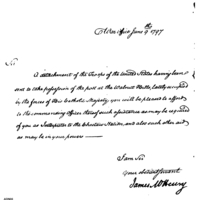 War Office June 9th 1797
Sir
A detachment of the Troops of the United States having been
sent to take possession of the post at the Walnut Hills, lately occupied
by the forces of his Catholic Majesty, you will be pleased to afford
to the commanding officer thereof such assistance as may be required
of you as to the Indians, and also such other aid
as may be in your power
I am Sir
Your obedient Servant
James McHenry